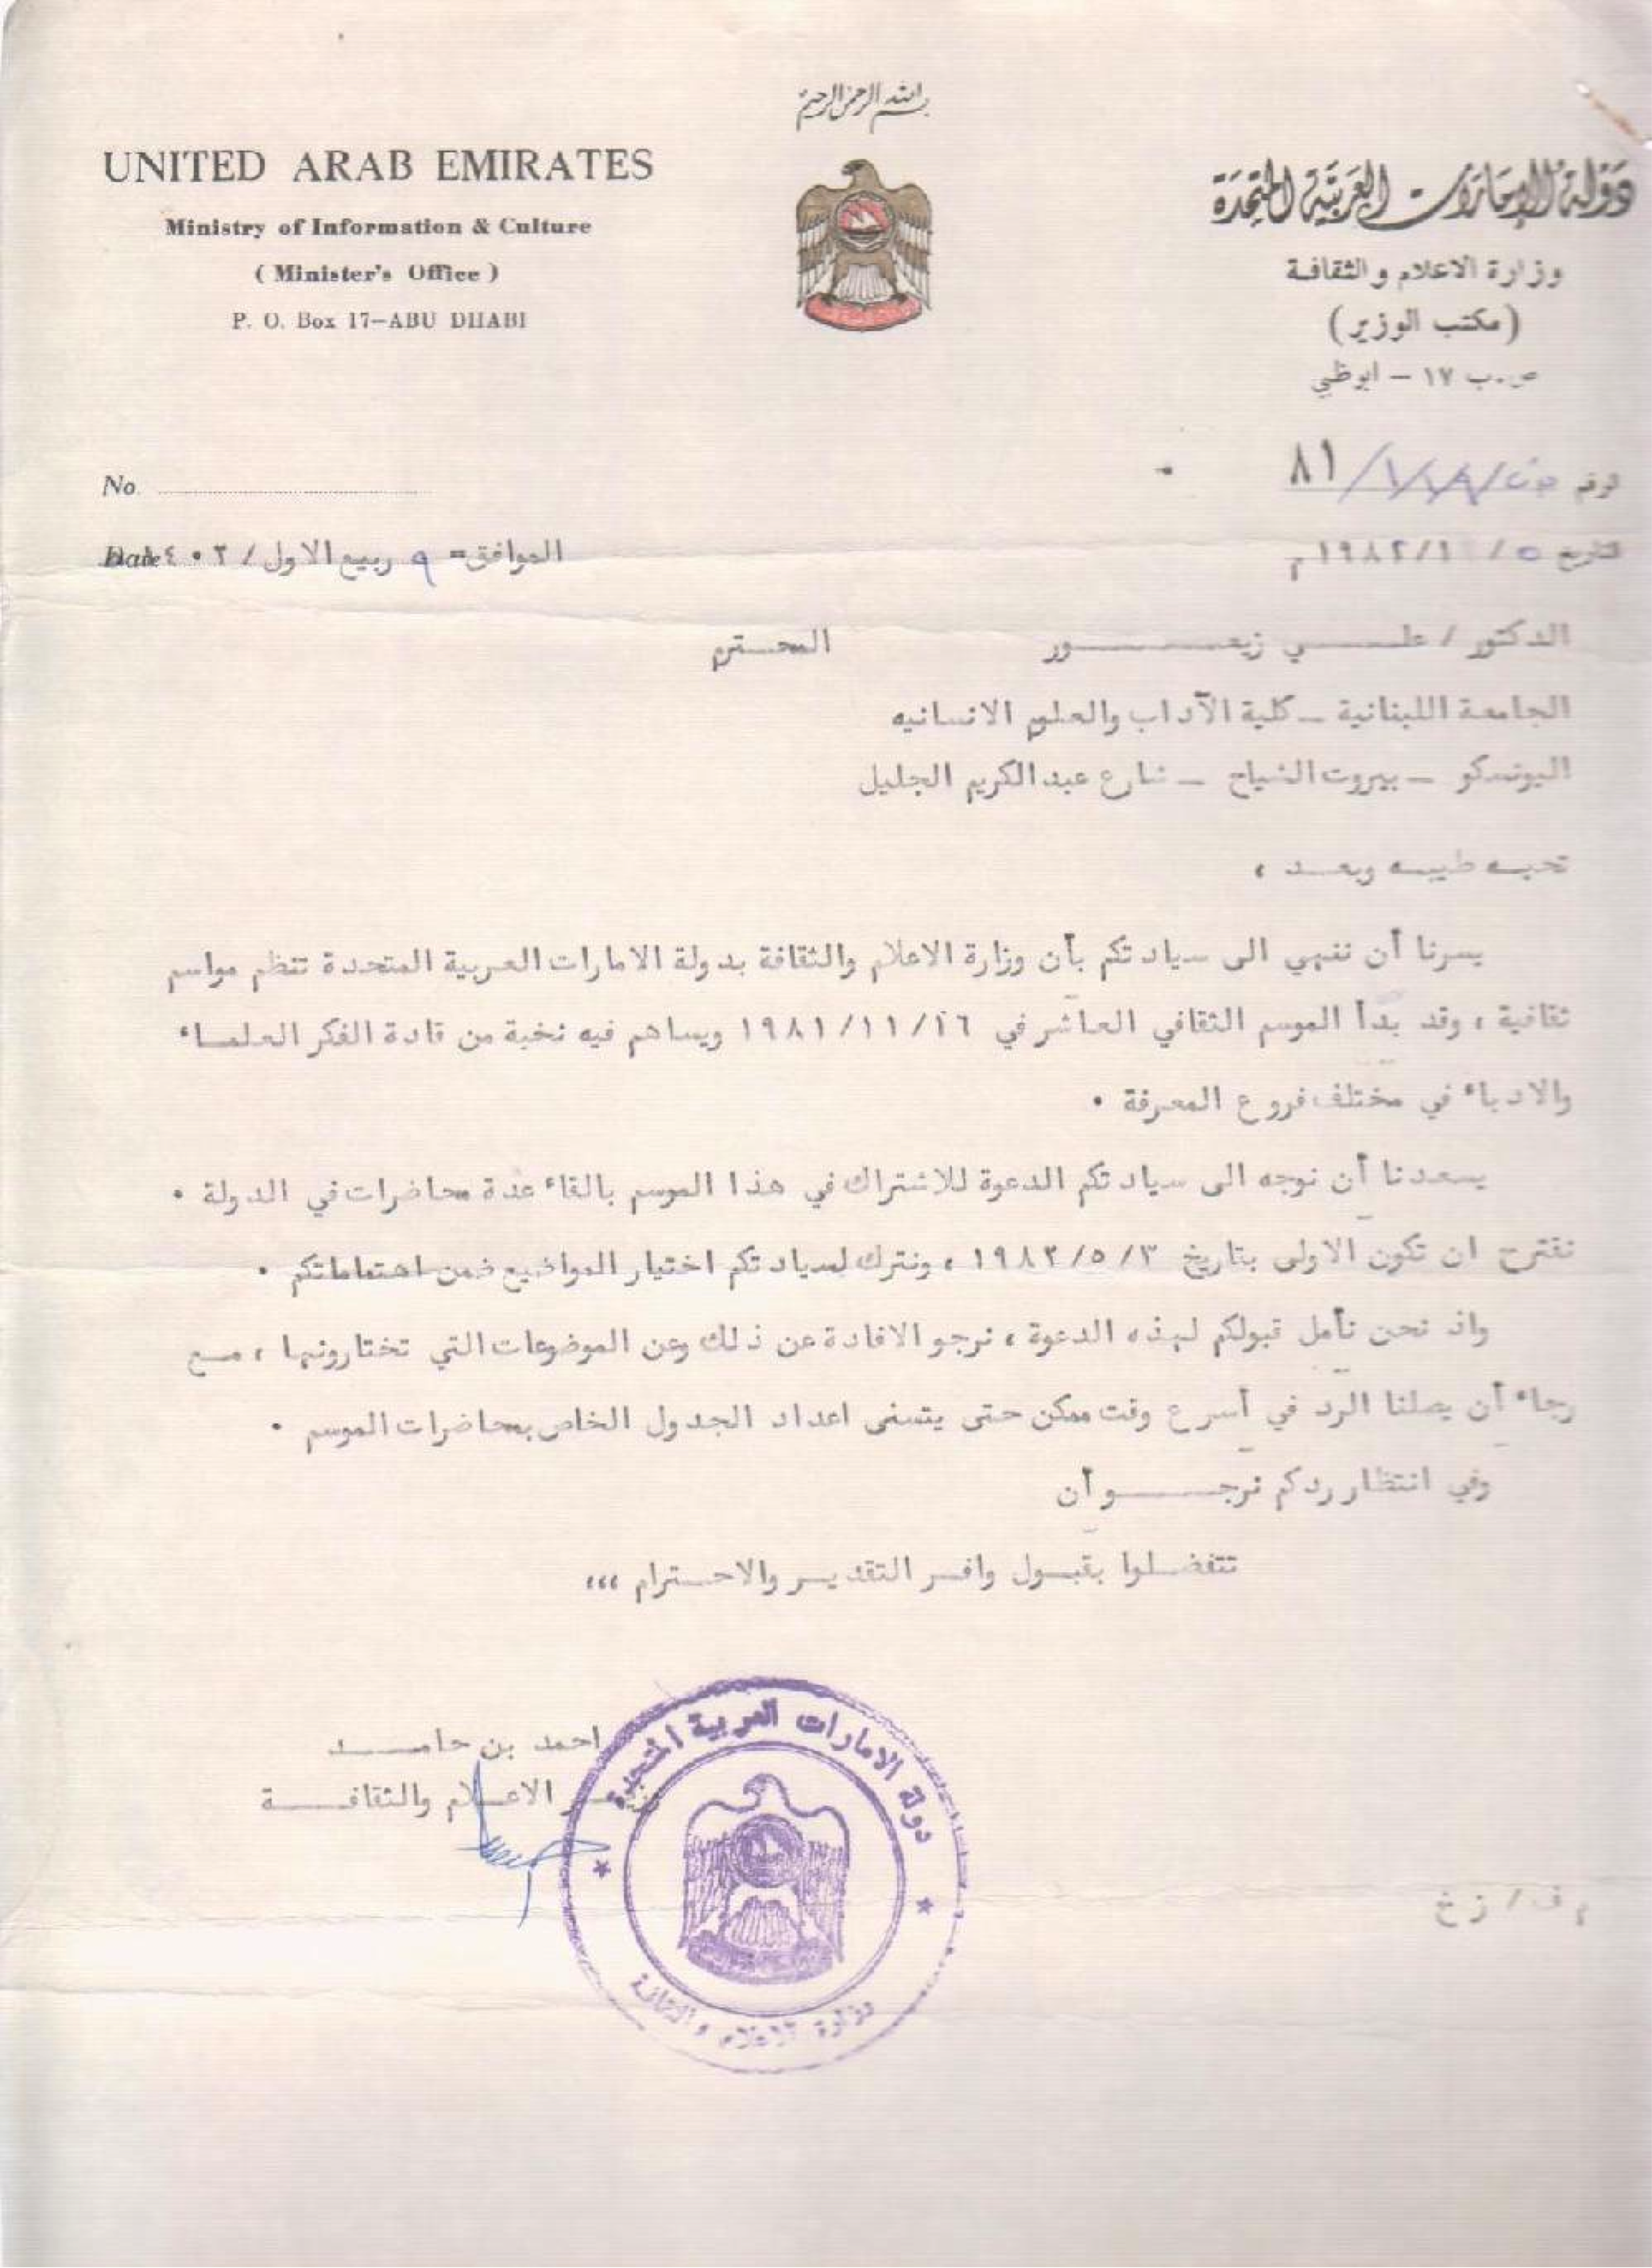 بسم الله الرحمن الرحيم
UNITED ARAB EMIRATES
Ministry of Information & Culture
( Minister's Office )
P. O. Box 17-ABU DHABI
دولة الإمارات العربية المتحدة
وزارة الاعلام والثقافة
(مكتب الوزير)
ص.ب ١٧ - ابوظبي
No.
الرقم ٨١
Date
الموافق= ٩ ربيع الاول / ١٤٠٢
التاريخ ٥/ /١٩٨٢ م
الدكتور / علــــي زيعـــــــور المحــترم
الجامعة اللبنانية ــ كلية الآداب والعلوم الانسانيه
اليونسكو ــ بيروت الشياح ــ شارع عبدالكريم الجليل
تحيــه طيبــه وبعــــد ،
يسرنا أن ننهي الى سيادتكم بأن وزارة الاعلام والثقافة بدولة الامارات العربية المتحدة تنظم مواسم
ثقافية ، وقد بدأ الموسم الثقافي العاشر في ١٩٨١/١١/٢٦ ويساهم فيه نخبة من قادة الفكر العلمــاء
والادباء في مختلف فروع المعرفة .
يسعدنا أن نوجه الى سيادتكم الدعوة للاشتراك في هذا الموسم بالقاء عدة محاضرات في الدولة .
نقترح ان تكون الاولى بتاريخ ١٩٨٢/٥/٣ ، ونترك لسيادتكم اختيار المواضيع ضمن اهتماماتكم .
واذ نحن نأمل قبولكم لهذه الدعوة ، نرجو الافادة عن ذلك وعن الموضوعات التي تختارونها ، مــع
رجاء أن يصلنا الرد في أسرع وقت ممكن حتى يتسنى اعداد الجدول الخاص بمحاضرات الموسم .
وفي انتظار ردكم نرجـــــــو أن
تتفضــلوا بقبــول وافــر التقديــر والاحــترام ،،،
احمد بن حامـــــد
وزيــر الاعــلام والثقافـــــة
دولة الامارات العربية المتحدة
وزارة الاعلام والثقافة
م ف / ز خ